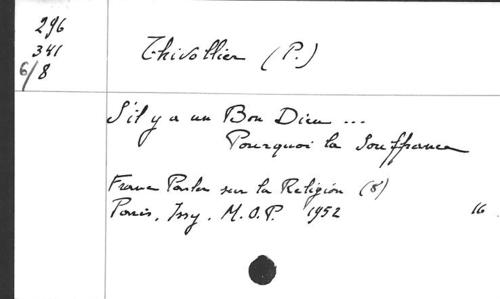 296
341
6/8
Thivollier (P.)
S'il y a un Bon Dieu ...
Pourquoi la Souffrance
Franc Parler sur la Religion (8)
Paris, Issy. M.O.P. 1952 16